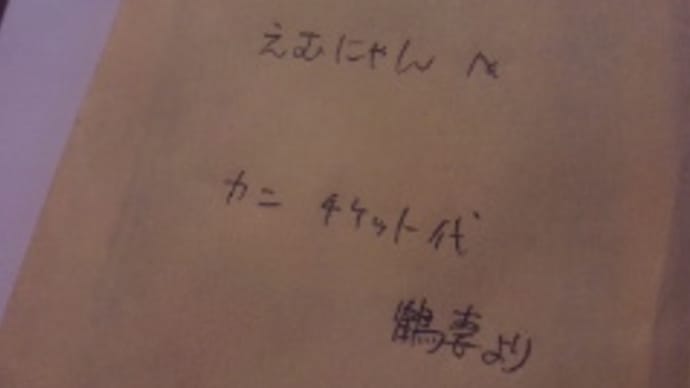 えむにゃん へ
カニ チケット代
鶴妻より